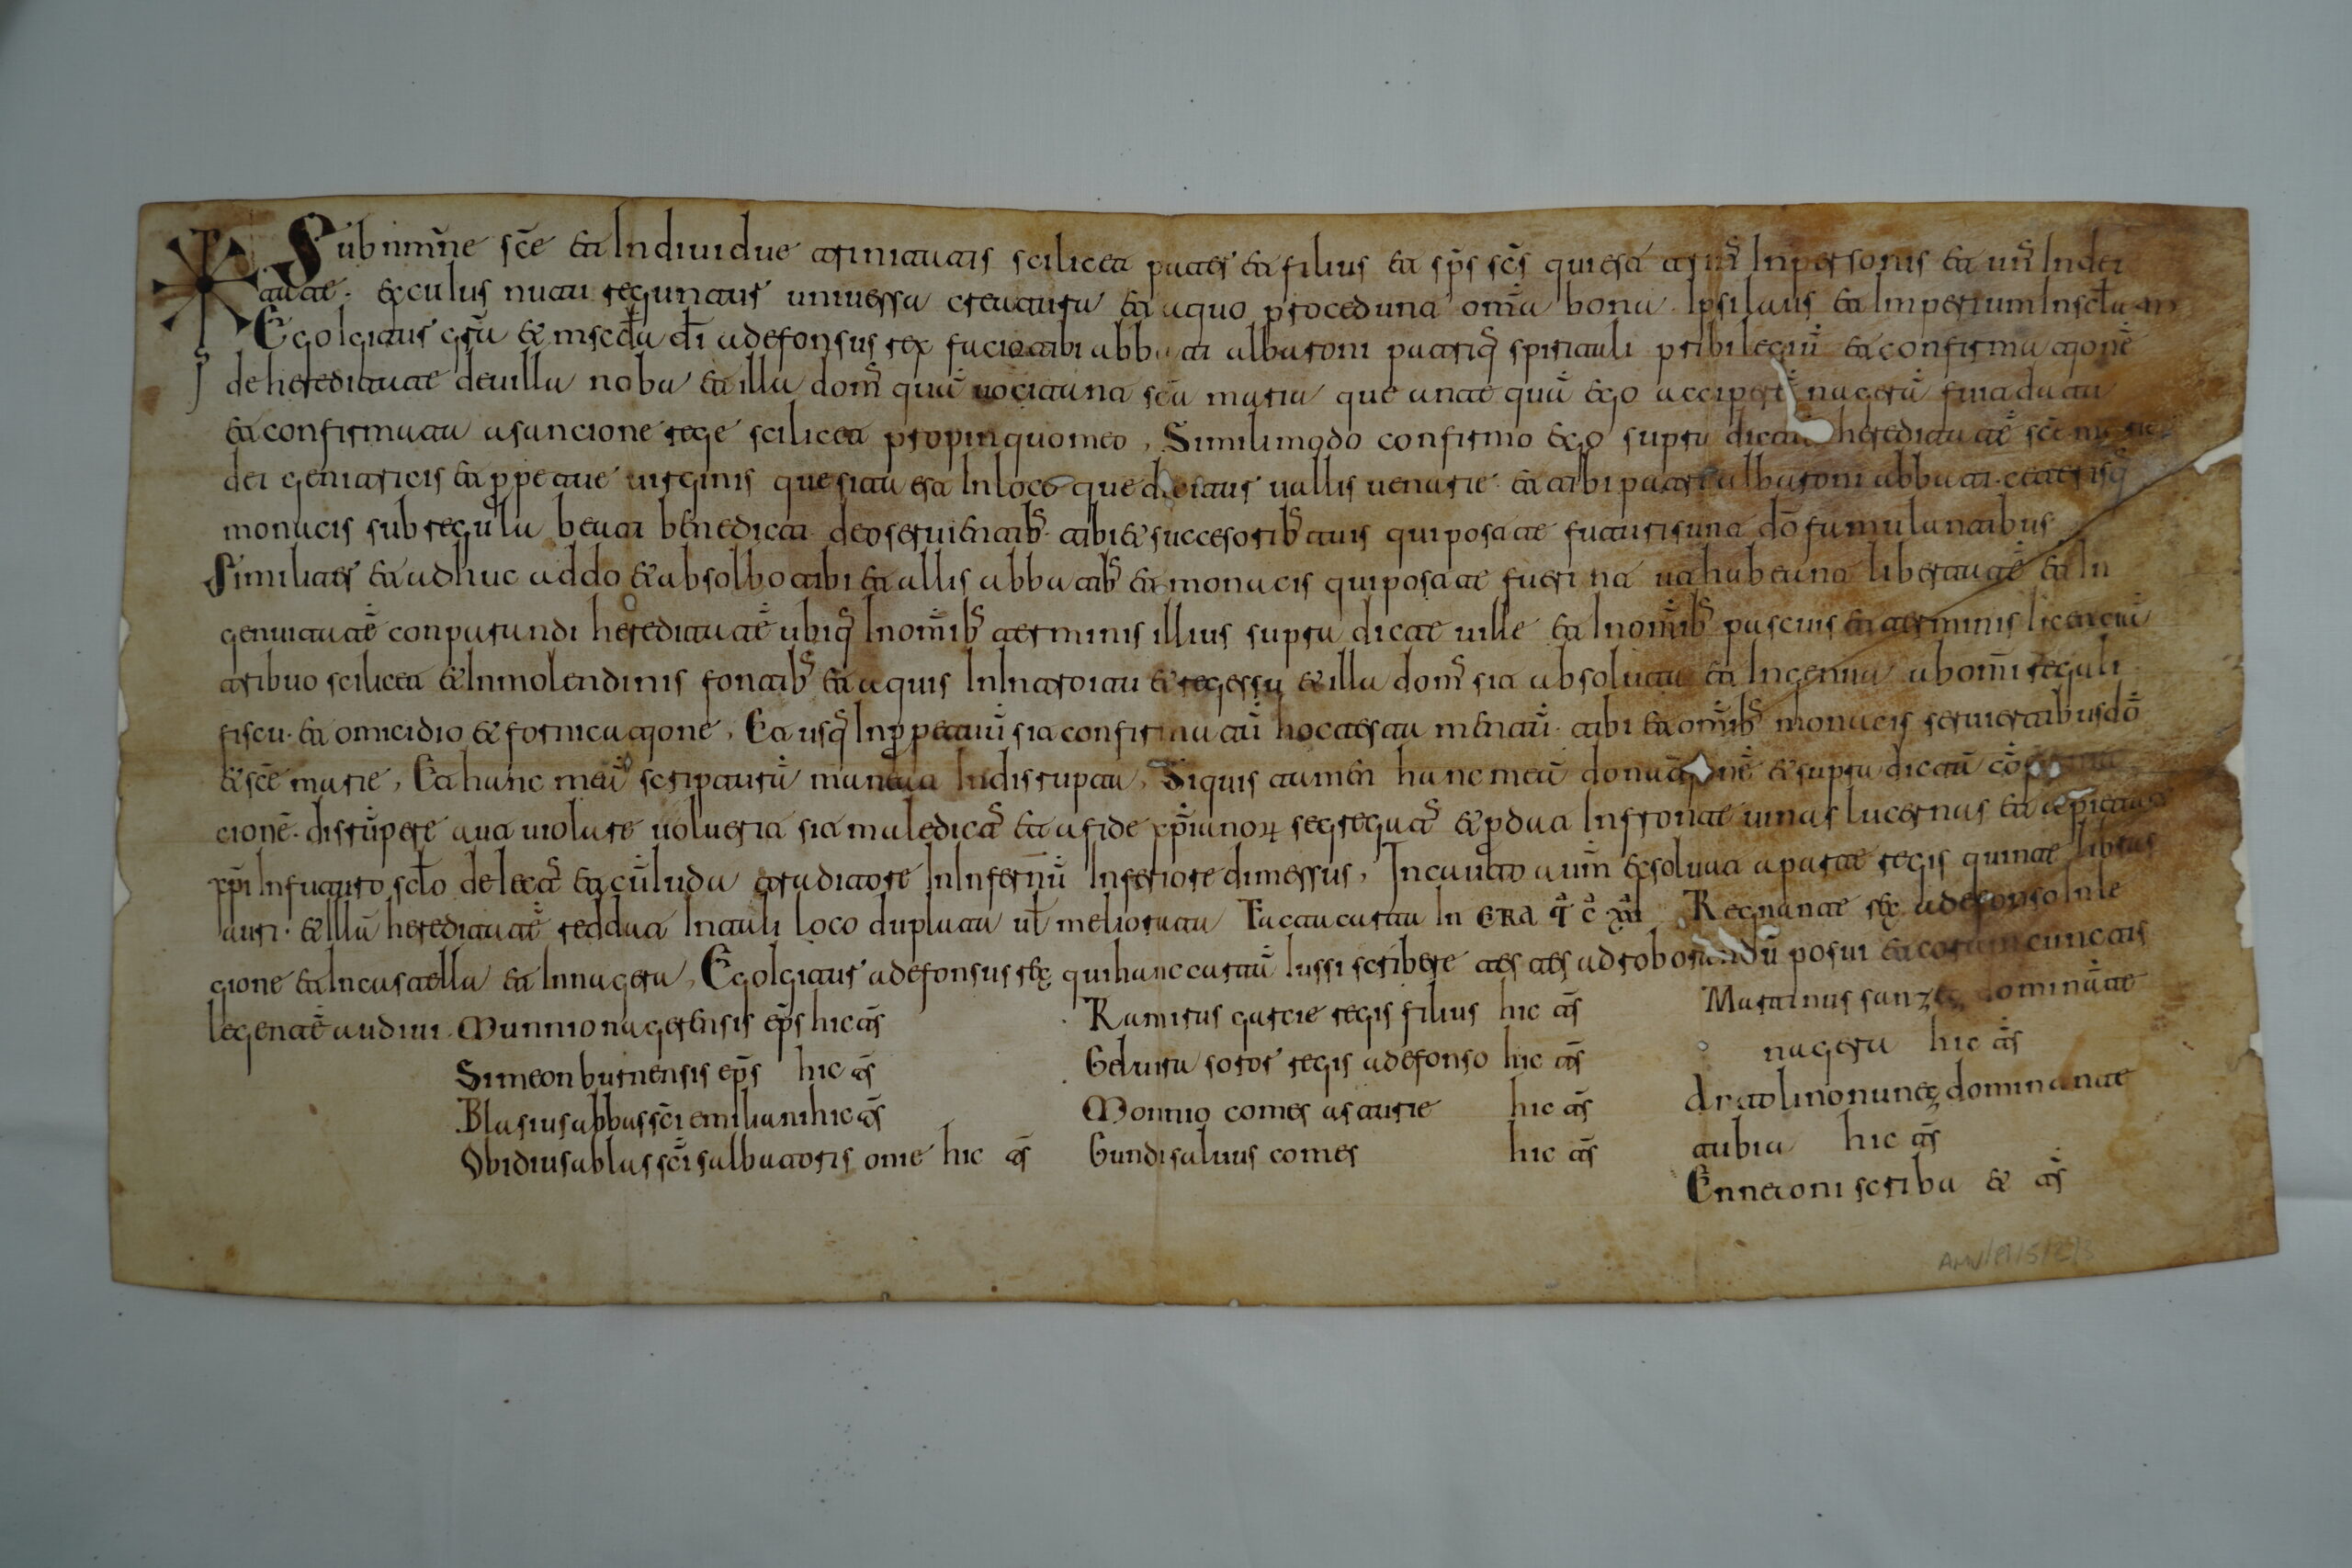 Sub nm̅ne sc̅e et Indiuidue trinitatis scilicet pater et filius et sp̅s sc̅s qui est trin᷒ In personis et un᷒ In dei
tate. ex cuius nutu regnantur uniuessa creatura et aquo procedunt om̅a bona. Ipsi laus et Imperium In scl̅a am
Ego Igitur gr̅a & mscd̅a di̅ adefonsus rex facio tibi abbati albaroni patriq᷒ spiritali pribilegiu̅ et confirmatjone̅
de hereditate deuilla noba et illa dom᷒ qua̅ uocitant sc̅a maria que ante qua̅ ego acciperē nagera̅ fuit data
et confirmata a sancione rege scilicet propinquo meo, Simili modo confirmo ego supra dicta hereditate̅ sc̅e marie
dei genitricis et p̱petue uirginis que sita est In loco que dicitur uallis uenarie. et tibi patri albaroni abbati. ceterisq᷒
monacis sub regula beati benedicti deo seruientib᷒. tibi & succesorib᷒ tuis qui post te futuri sunt do̅ famulantibus
Similiter et adhuc addo & absolbo tibi et allis abbatib᷒ et monacis qui post te fuerint ut habeant libertate̅ et In
genuitate̅ conparandi hereditate̅ ubiq᷒ In om̅ib᷒ terminis illius supra dicte uille et In om̅ib᷒ pascuis et terminis licentia̅
tribuo scilicet & In molendinis fontib᷒ et aquis In Introitu & regessu & illa dom᷒ sit absoluta et Ingenua ab om̅i regali
fiscu. et omicidio & fornicatjone, Et usq᷒ In p̱petuu̅ sit confirmatu̅ hoc testamentu̅. tibi et om̅ib᷒ monacis seruientibus do̅
& sc̅e marie, Et hanc mea̅ scriptura̅ maneat Indisrupta, Siquis tamen hanc mea̅ donatjone̅ & supra dicta̅
cione̅. disru̅pere aut uiolare uoluerit sit maledict᷒ et a fide xp̅ianoꝝ segregat᷒ & p̱dat In fronte uinas lucernas et a
xp̅i In futuro sclo̅ deiect᷒ et cu̅ Iuda traditore In Infernu̅ Inferiore dimessus, In cauto aum̅ exsoluat a parte regis quinte libras
auri. & Illa̅ hereditate̅ reddat In tali loco duplata ul̅ meliorata Facta carta In ERA T̅ C̅ Regnante rex adefonso In le
gione et In castella et In nagera, Ego Igitur adefonsus rex qui hanc carta̅ Iussi scribere tes tes ad roborandu̅ posui et coram cunctis
legente̅ audiui. Munnio nagerensis ep̅s hic ts̅
Simeon burnensis ep̅s hic ts̅
Blasius abbas sc̅i emiliani hic ts̅
Obidius abbas sc̅i salbatoris onie hic ts̅
Ramirus garcie regis filius hic ts̅
Gelrura soror regis adefonso hic ts̅
Monnio comes asturie hic ts̅
Gundisaluus comes hic ts̅
Martinus sanzez dominate
nagera hic ts̅
dominante
hic ts̅
Ennetoni scriba & ts̅